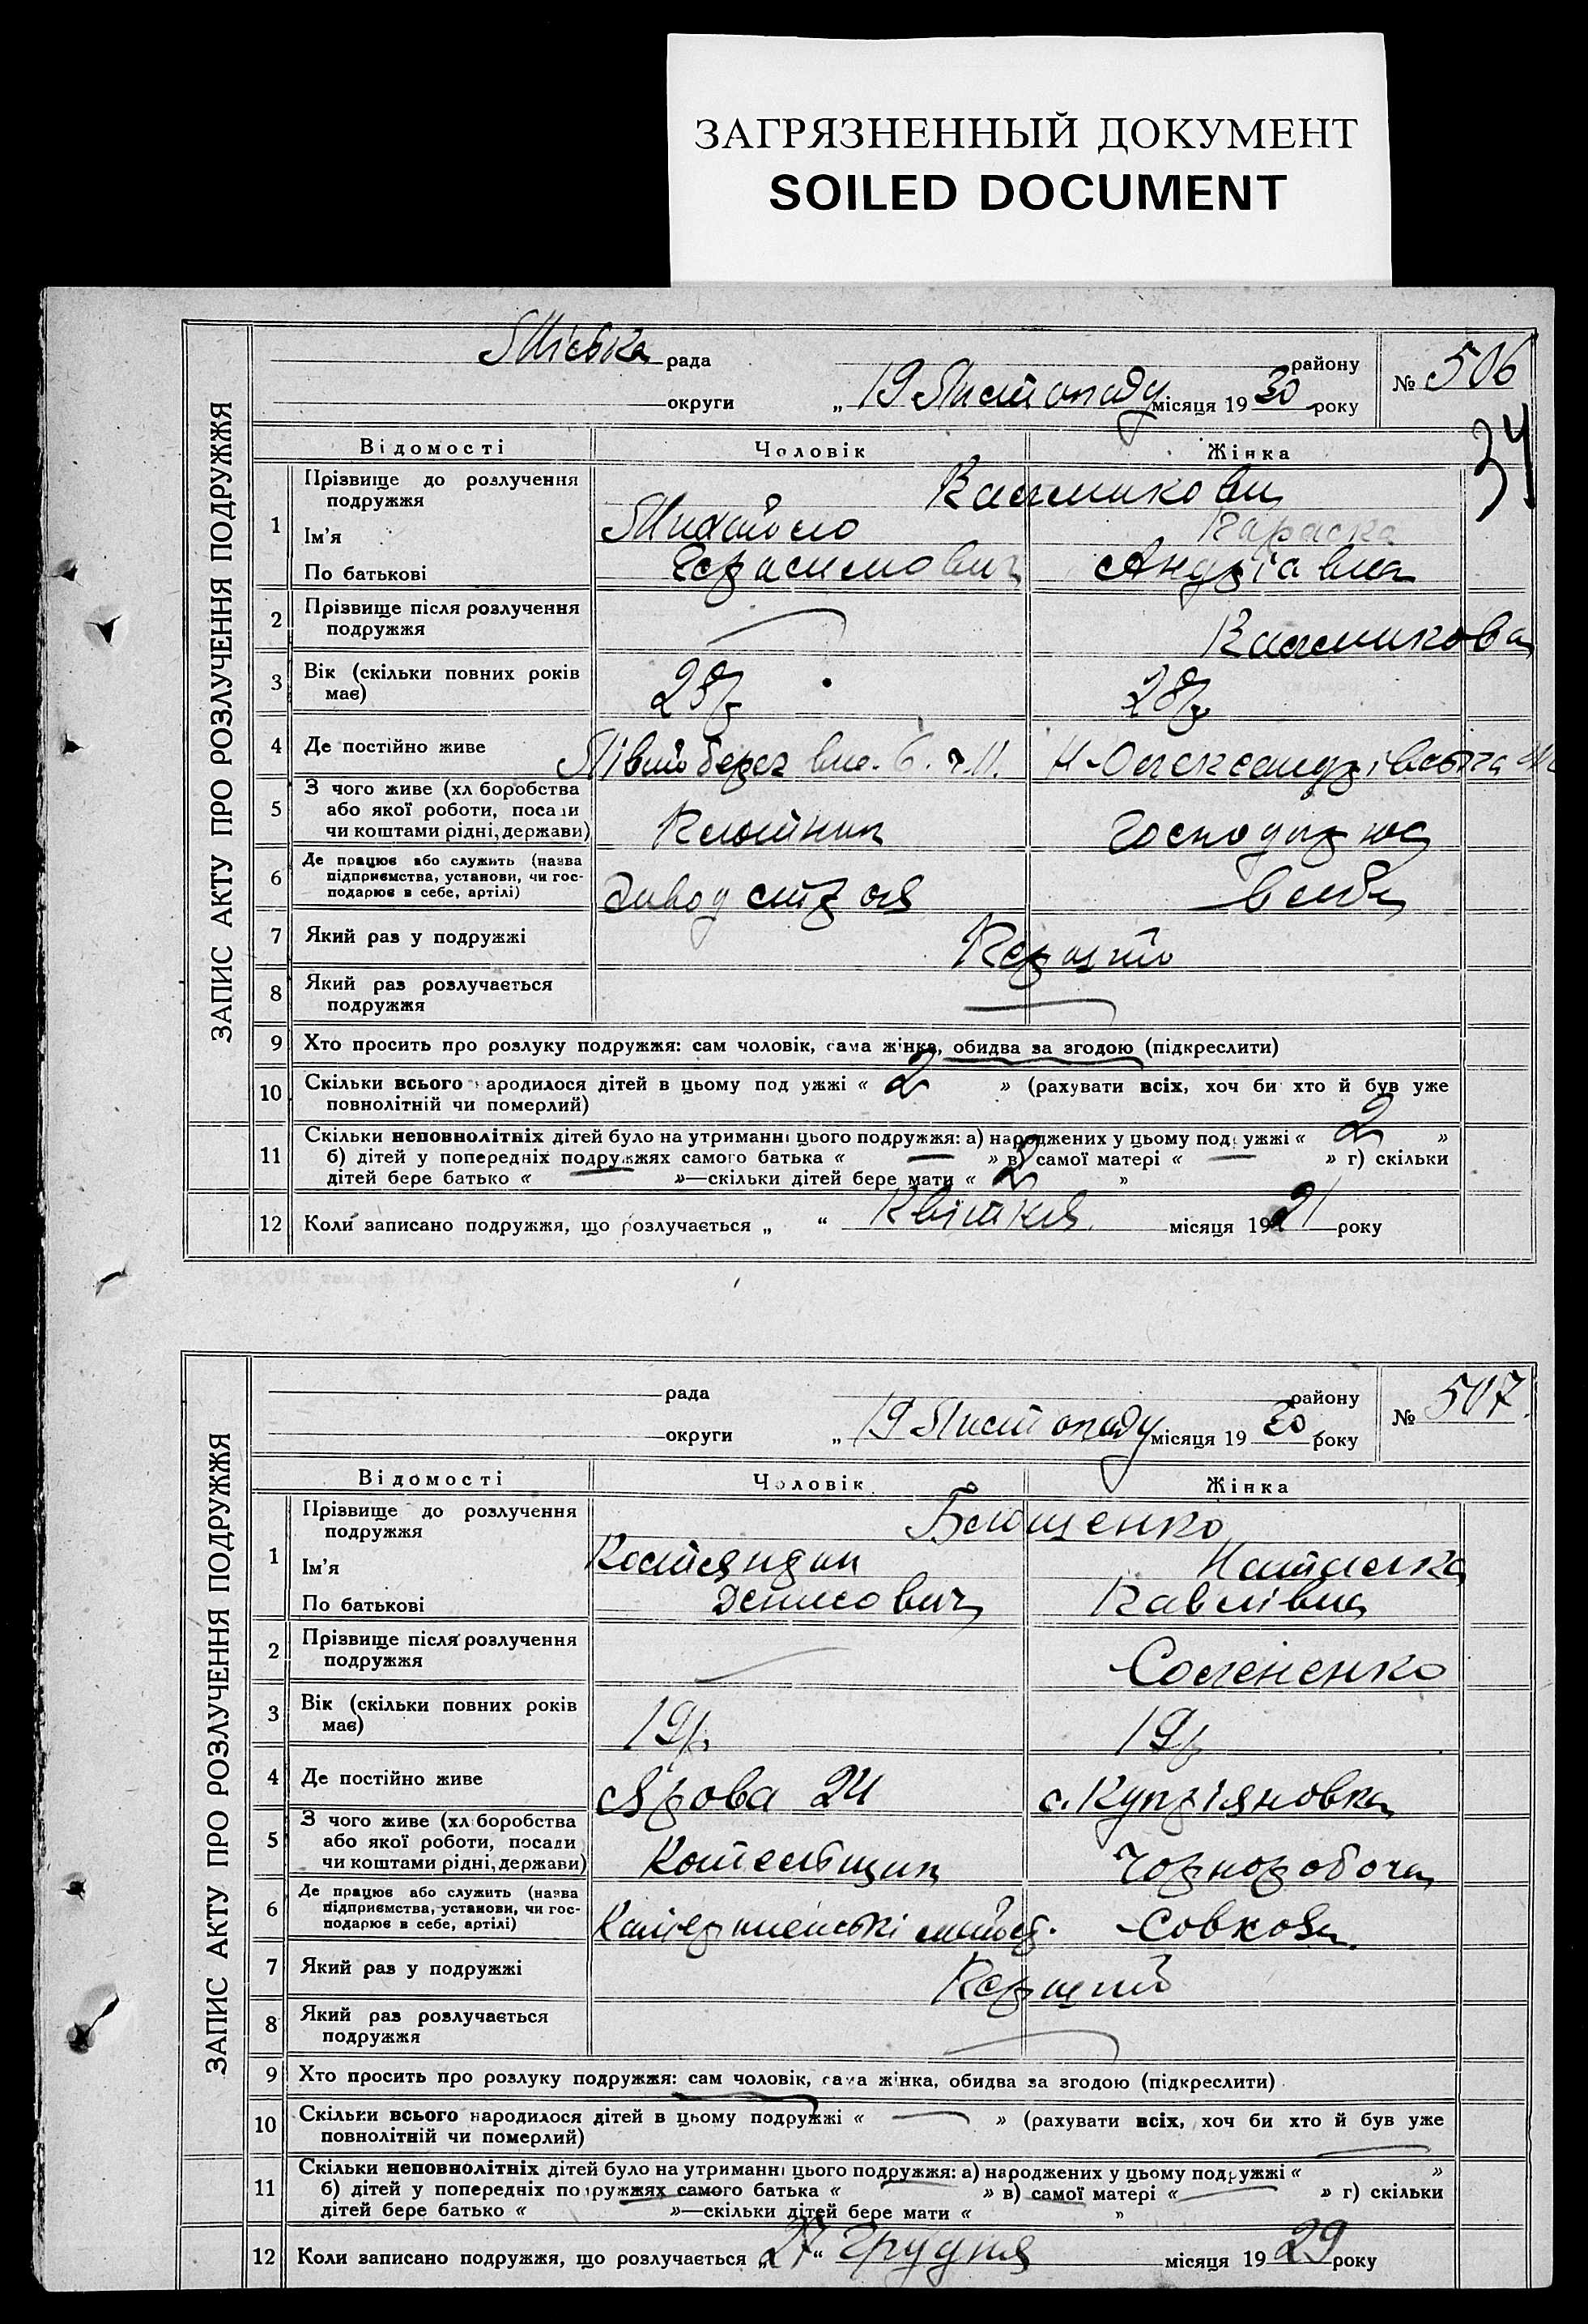 ЗАГРЯЗНЕННЫЙ ДОКУМЕНТ
SOILED DOCUMENT
ЗАПИС АКТУ ПРО РОЗЛУЧЕННЯ ПОДРУЖЖЯ
Міська рада району № 506
округи „ 19 Листопаду місяця 1930 року
34
Відомості Чоловік Жінка
1 Прізвище до розлучення подружжя
Ім'я Михайло Параска
По батькові Герасимович Андріївна
2 Прізвище після розлучення
подружжя
3 Вік (скільки повних років 28р 28р.
має)
4 Де постійно живе
5 З чого живе (хліборобства
або якої роботи, посади
чи коштами рідні, держави)
6 Де працює або служить (назва
підприємства, установи, чи гос-
подарює в себе, артілі)
7 Який раз у подружжі Перший
8 Який раз розлучається
подружжя
9 Хто просить про розлуку подружжя: сам чоловік, сама жінка, обидва за згодою (підкреслити)
10 Скільки всього народилося дітей в цьому подружжі « 2 » (рахувати всіх, хоч би хто й був уже
повнолітній чи померлий)
11 Скільки неповнолітніх дітей було на утриманні цього подружжя: а) народжених у цьому подружжі « 2 »
б) дітей у попередніх подружжях самого батька « — » в) самої матері « — » г) скільки
дітей бере батько « — »—скільки дітей бере мати « 2 »
12 Коли записано подружжя, що розлучається „ “ Квітня місяця 1921 року
ЗАПИС АКТУ ПРО РОЗЛУЧЕННЯ ПОДРУЖЖЯ
рада району № 507.
округи „ 19 Листопаду місяця 1930 року
Відомості Чоловік Жінка
1 Прізвище до розлучення Блющенко
подружжя
Ім'я Костянтин Наталка
По батькові Денисович Павлівна
2 Прізвище після розлучення
подружжя
3 Вік (скільки повних років 19р. 19р
має)
4 Де постійно живе Ярова 24 с. Купріяновка
5 З чого живе (хліборобства
або якої роботи, посади
чи коштами рідні, держави) Котельщик Чорноробоча
6 Де працює або служить (назва
підприємства, установи, чи гос-
подарює в себе, артілі)
7 Який раз у подружжі Перший
8 Який раз розлучається
подружжя
9 Хто просить про розлуку подружжя: сам чоловік, сама жінка, обидва за згодою (підкреслити)
10 Скільки всього народилося дітей в цьому подружжі « — » (рахувати всіх, хоч би хто й був уже
повнолітній чи померлий)
11 Скільки неповнолітніх дітей було на утриманні цього подружжя: а) народжених у цьому подружжі « — »
б) дітей у попередніх подружжях самого батька « — » в) самої матері « — » г) скільки
дітей бере батько « »—скільки дітей бере мати « »
12 Коли записано подружжя, що розлучається „27“ Грудня місяця 1929 року